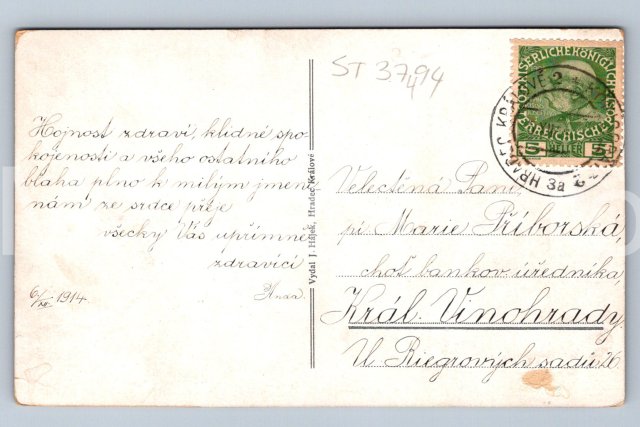 Hojnost zdraví, klidné spo-
kojenosti a všeho ostatního
blaha plno k milým jmeni-
nám ze srdce přeje
všecky Vás upřímně
zdravící
6/XII 1914.
Vydal J. Hájek, Hradec Králové
ST 37494
HRADEC KRÁLOVÉ 2
3a
5 HELLER 5
Velectěná Paní,
pí Marie Příborská,
choť bankov. úředníka,
Král. Vinohrady,
Ul. Riegrových sadů 26